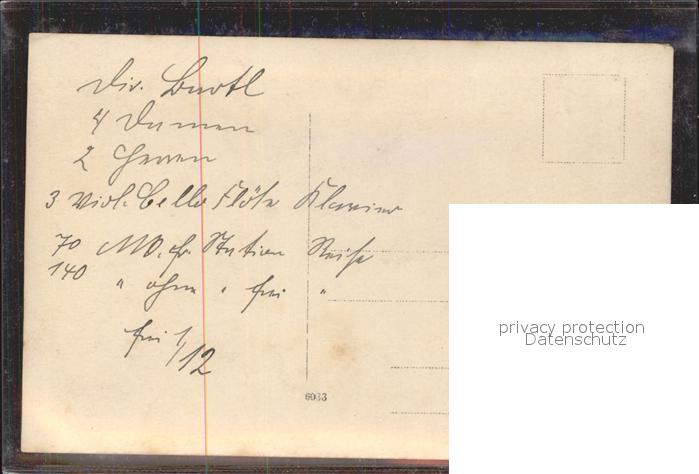 Dir. Bartl
4 Damen
2 Herren
3 Viol. Cello Flöte Klavier
70 M fr. Station Reise
140 " ohne " frei "
frei 1/12
6033
privacy protection
Datenschutz